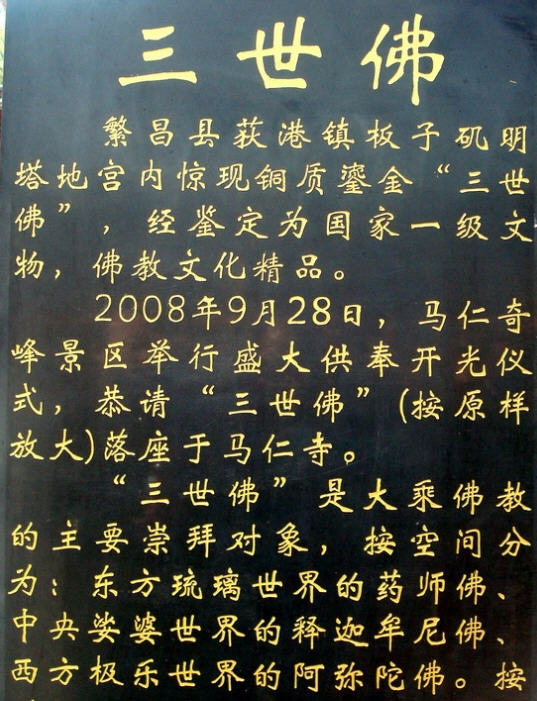 三世佛
繁昌县荻港镇板子矶明
塔地宫内惊现铜质鎏金“三世
佛”，经鉴定为国家一级文
物，佛教文化精品。
2008年9月28日，马仁奇
峰景区举行盛大供奉开光仪
式，恭请“三世佛”(按原样
放大)落座于马仁寺。
“三世佛”是大乘佛教
的主要崇拜对象，按空间分
为：东方琉璃世界的药师佛、
中央娑婆世界的释迦牟尼佛、
西方极乐世界的阿弥陀佛。按